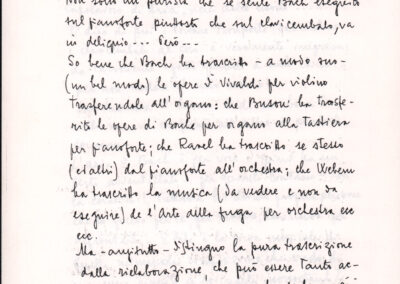 Non sono un purista che se sente Bach eseguito
sul pianoforte piuttosto che sul clavicembalo, va
in deliquio --- Però ---
So bene che Bach ha trascritto - a modo suo -
(un bel modo) le opere di Vivaldi per violino
trasferendole all'organo: che Busoni ha trasfe-
rito le opere di Bach per organo alla tastiera
per pianoforte; che Ravel ha trascritto se stesso
(ed altri) dal pianoforte all'orchestra; che
ha trascritto la musica (da vedere e non da
eseguire) de l'Arte della fuga per orchestra ecc
ecc.
Ma - anzitutto - distinguo la pura trascrizione
dalla rielaborazione, che può essere tanto ac-